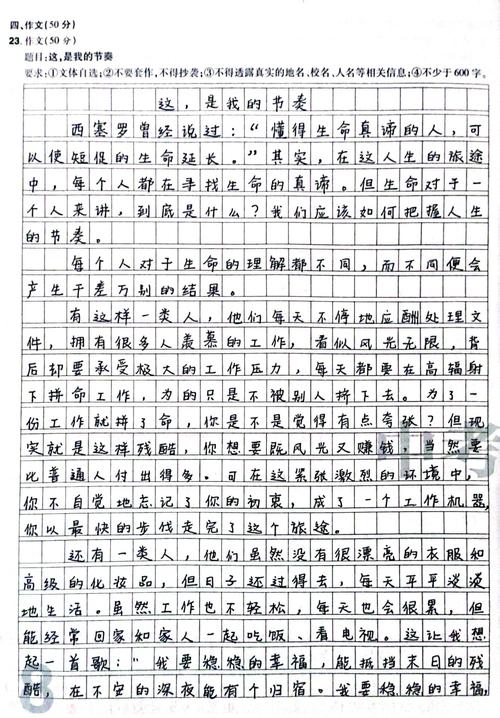 四、作文(50分)
23.作文(50分)
题目:这,是我的节奏
要求:①文体自选;②不要套作,不得抄袭;③不得透露真实的地名、校名、人名等相关信息;④不少于600字。
这,是我的节奏
西塞罗曾经说过:“懂得生命真谛的人,可
以使短促的生命延长。”其实,在这人生的旅途
中,每个人都在寻找生命的真谛。但生命对于一
个人来讲,到底是什么?我们应该如何把握人生
的节奏。
每个人对于生命的理解都不同,而不同便会
产生千差万别的结果。
有这样一类人,他们每天不停地应酬处理文
件,拥有很多人羡慕的工作,看似风光无限,背
后却要承受极大的工作压力,每天都要在高辐射
下拼命工作,为的只是不被别人挤下去。为了一
份工作就拼了命,你是不是觉得有点夸张?但现
实就是这样残酷,你想要既风光又赚钱,当然要
比普通人付出得多。可在这紧张激烈的环境中,
你不自觉地忘记了你的初衷,成了一个工作机器,
你以最快的步伐走完了这个旅途。
还有一类人,他们虽然没有很漂亮的衣服和
高级的化妆品,但日子还过得去,每天平平淡淡
地生活。虽然工作也不轻松,每天也会很累,但
能经常回家和家人一起吃饭、看电视。这让我想
起一首歌:“我要稳稳的幸福,能抵挡末日的残
酷,在不安的深夜能有个归宿。我要稳稳的幸福,
中考
8